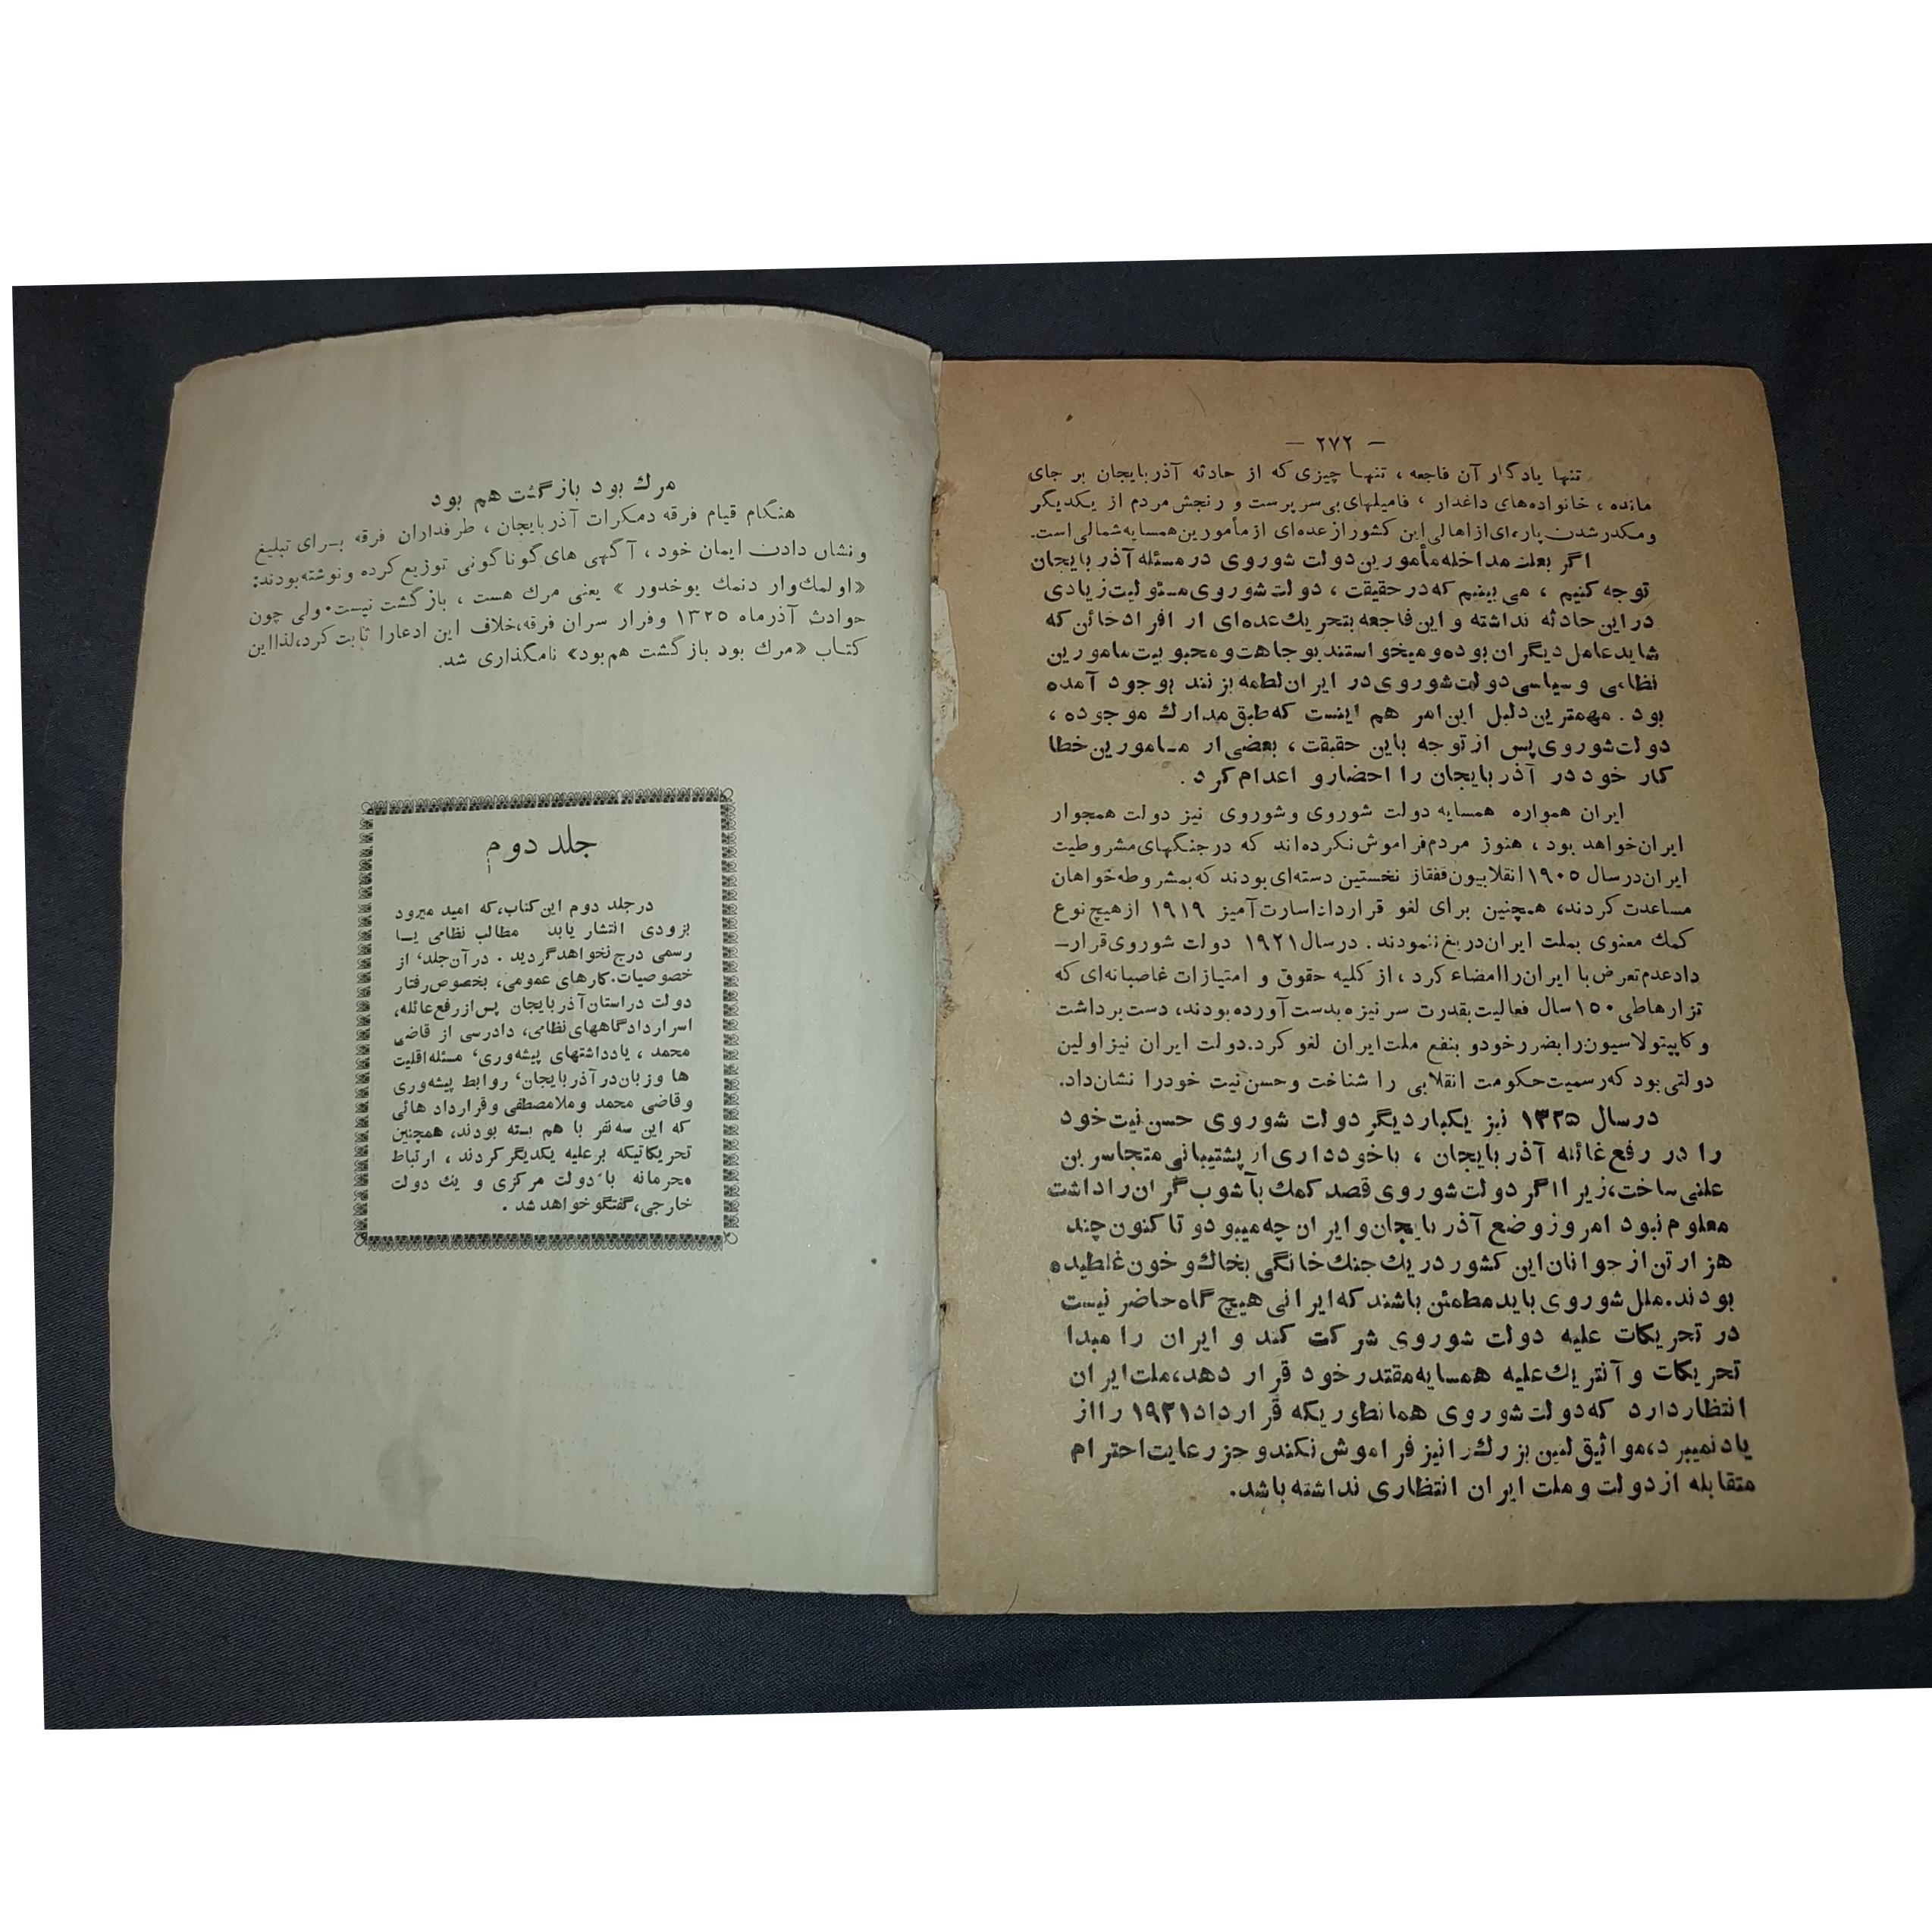 — ۲۷۲ —
تنها یادگار آن فاجعه ، تنها چیزی که از حادثه آذربایجان بر جای
مانده ، خانواده‌های داغدار ، فامیلهای بی‌سرپرست و رنجش مردم از یکدیگر
و مکدر شدن پاره‌ای از اهالی این کشور از عده‌ای از مأمورین همسایه شمالی است.
اگر بعلت مداخله مأمورین دولت شوروی در مسئله آذربایجان
توجه کنیم ، می بینیم که در حقیقت ، دولت شوروی مسئولیت زیادی
در این حادثه نداشته و این فاجعه بتحریك عده‌ای از افراد خائن که
شاید عامل دیگران بوده و میخواستند بوجاهت و محبوبیت مامورین
نظامی و سیاسی دولت شوروی در ایران لطمه بزنند بوجود آمده
بود . مهمترین دلیل این امر هم اینست که طبق مدارك موجوده ،
دولت شوروی پس از توجه باین حقیقت ، بعضی از مـامورین خطا
کار خود در آذربایجان را احضار و اعدام کرد .
ایران همواره همسایه دولت شوروی و شوروی نیز دولت همجوار
ایران خواهد بود ، هنوز مردم فراموش نکرده‌اند که در جنگهای مشروطیت
ایران در سال ۱۹۰۵ انقلابیون قفقاز نخستین دسته‌ای بودند که بمشروطه خواهان
مساعدت کردند، همچنین برای لغو قرارداد اسارت آمیز ۱۹۱۹ از هیچ نوع
کمك معنوی بملت ایران دریغ ننمودند . در سال ۱۹۲۱ دولت شوروی قرار-
داد عدم تعرض با ایران را امضاء کرد ، از کلیه حقوق و امتیازات غاصبانه‌ای که
تزارها طی ۱۵۰ سال فعالیت بقدرت سر نیزه بدست آورده بودند، دست برداشت
و کاپیتولاسیون را بضرر خود و بنفع ملت ایران لغو کرد. دولت ایران نیز اولین
دولتی بود که رسمیت حکومت انقلابی را شناخت و حسن نیت خود را نشان داد.
در سال ۱۳۲۵ نیز یکبار دیگر دولت شوروی حسن نیت خود
را در رفع غائله آذربایجان ، با خودداری از پشتیبانی متجاسرین
علنی ساخت، زیرا اگر دولت شوروی قصد کمك بآشوب گران را داشت
معلوم نبود امروز وضع آذربایجان و ایران چه میبود و تا کنون چند
هزار تن از جوانان این کشور در یك جنك خانگی بخاك و خون غلطیده
بودند. ملل شوروی باید مطمئن باشند که ایرانی هیچ گاه حاضر نیست
در تحریکات علیه دولت شوروی شرکت کند و ایران را مبدا
تحریکات و آنتریك علیه همسایه مقتدر خود قرار دهد، ملت ایران
انتظار دارد که دولت شوروی همانطوریکه قرارداد ۱۹۲۱ را از
یاد نمیبرد، مواثیق لنین بزرك را نیز فراموش نکند و جز رعایت احترام
متقابله از دولت و ملت ایران انتظاری نداشته باشد.
مرك بود بازگشت هم بود
هنگام قیام فرقه دمکرات آذربایجان ، طرفداران فرقه بـرای تبلیغ
و نشان دادن ایمان خود ، آگهی های گوناگونی توزیع کرده و نوشته بودند:
«اولمك‌وار دنمك یوخدور » یعنی مرك هست ، بازگشت نیست. ولی چون
حوادث آذرماه ۱۳۲۵ و فرار سران فرقه، خلاف این ادعا را ثابت کرد، لذا این
کتاب «مرك بود بازگشت هم بود» نامگذاری شد.
جلد دوم
در جلد دوم این کتاب، که امید میرود
بزودی انتشار یابد مطالب نظامی یـا
رسمی درج نخواهد گردید . در آن جلد، از
خصوصیات، کارهای عمومی، بخصوص رفتار
دولت در استان آذربایجان پس از رفع غائله،
اسرار دادگاههای نظامی، دادرسی از قاضی
محمد ، یادداشتهای پیشه‌وری، مسئله اقلیت
ها و زبان در آذربایجان، روابط پیشه‌وری
و قاضی محمد و ملا مصطفی و قرارداد هائی
که این سه نفر با هم بسته بودند، همچنین
تحریکاتیکه بر علیه یکدیگر کردند ، ارتباط
محرمانه با دولت مرکزی و یك دولت
خارجی، گفتگو خواهد شد .